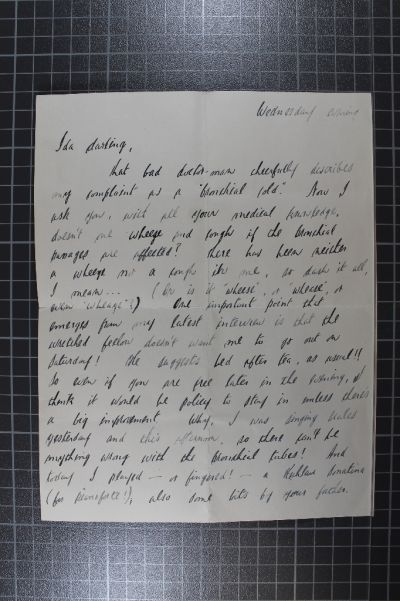 Wednesday evening
Ida darling,
that bad doctor-man cheerfully describes
my complaint as a "bronchial cold". Now I
ask you, with all your medical knowledge,
doesn't one wheeze and cough if the bronchial
passages are affected? There has been neither
a wheeze nor a cough in me, so dash it all,
I mean... (Or is it 'wheese', or 'wheece', or
even 'wheage'?) One important point that
emerges from my latest interview is that the
wretched fellow doesn't want me to go out on
Saturday! He suggests bed after tea, as usual!!
So even if you are free later in the evening, I
think it would be policy to stay in unless there's
a big improvement. Why, I was singing scales
yesterday and this afternoon, so there can't be
anything wrong with the bronchial tubes! And
today I played — or fingered! — a Kuhlau Sonatina
(for pianoforte!), also some bits by your father.